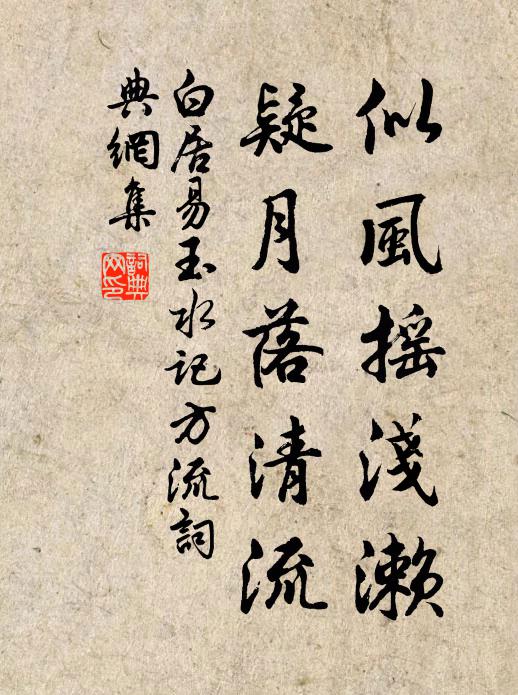 似風摇淺濑
疑月落清流
白居易玉水记方流詞
典網集
詞典
网印